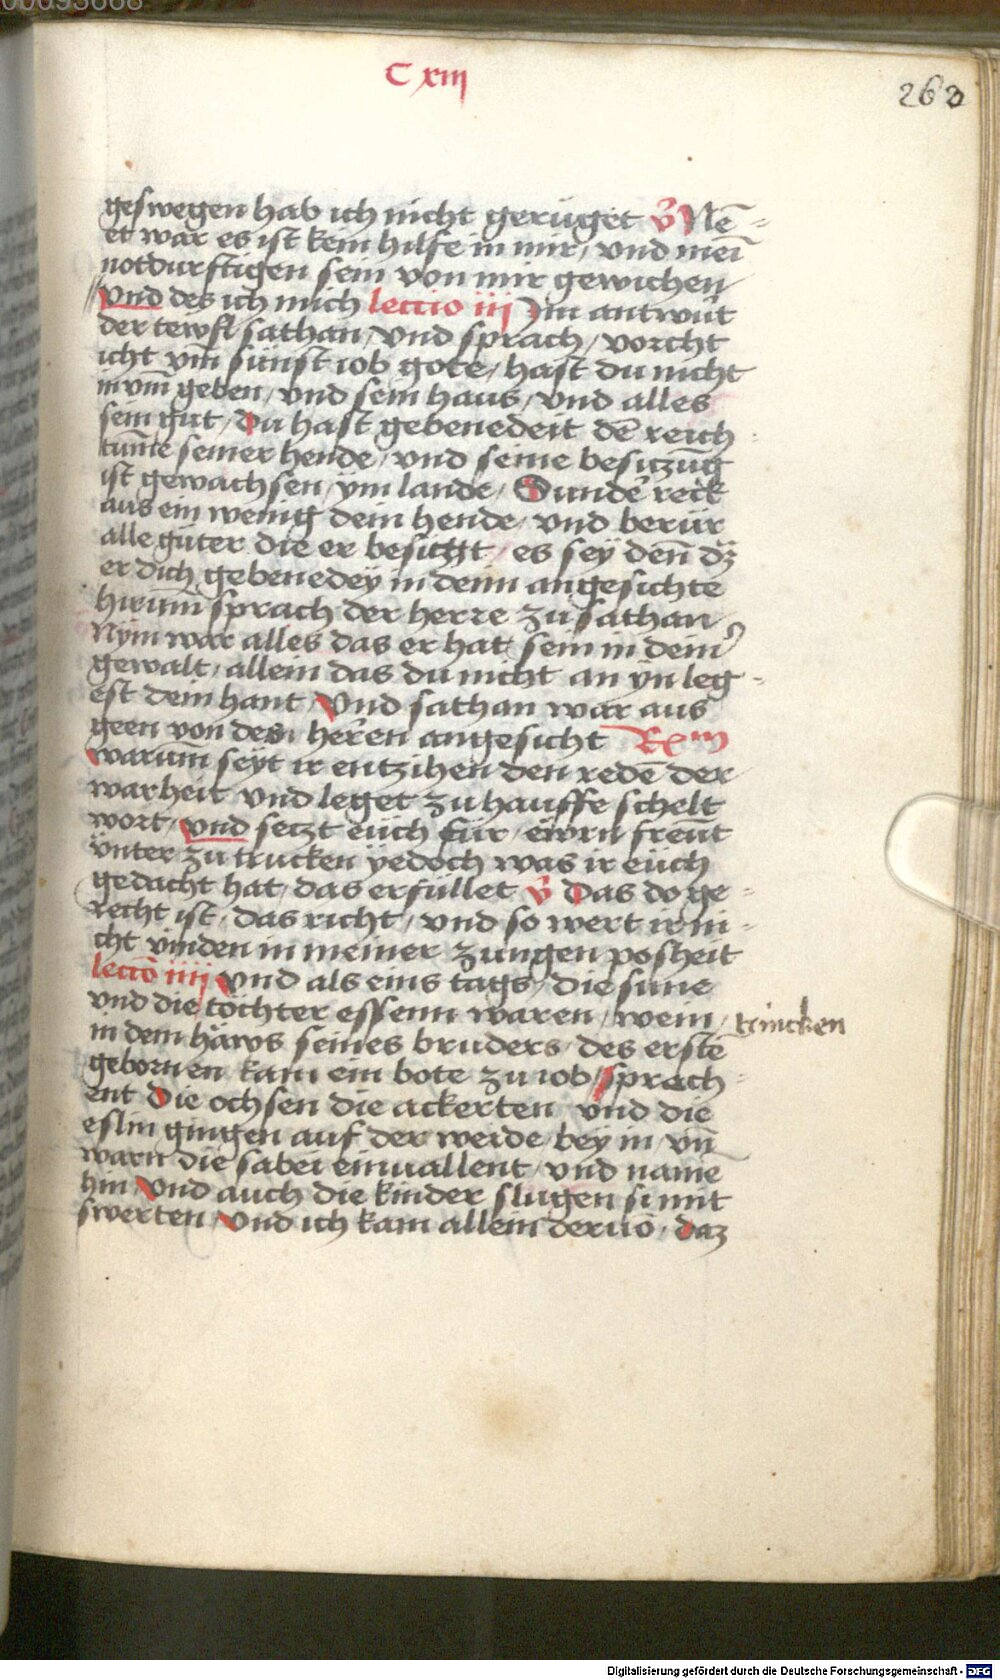 00093668
C xiij
263
geswegen hab ich nicht gerüget V̄ Nē-
et war es ist kein hilfe in mir, vnd mei̅
notdurftigen sein von mir gewichen
vnd des ich mich lectio iij Im antwüt
der tewfl sathan, vnd sprach, vorcht
icht vm̄ sunst iob gote, hast du nicht
in vm̄ geben, vnd sein haus, vnd alles
sein gut, du hast gebenedeit dē reich
tum̄e seiner hende, vnd seine besiczūg
ist gewachsen, ym lande, Sunder reck
aus ein wenig dein hende, vnd berür
alle güter die er besiczt, es sey den̄ dz
er dich gebenedey in deim angesichte
hirum̄ sprach der herre zu sathan
Nym war alles das er hat sein in deiner
gewalt, allein das du nicht an yn leg-
est dein hant, Vnd sathan war aus
geen von des herren angesicht Rx iij
warum̄ seyt ir entzihen den redē der
warheit vnd leget zu hauffe schelt
wort, vnd seczt eüch für, ewrn freüt
vnter zu trucken yedoch was ir eüch
gedacht hat, das erfullet V̄ das do ge-
recht ist, das richt, vnd so wert ir ni-
cht vinden in meiner zungen posheit
lecciō iiij vnd als eins tags, die süne
vnd die töchter essenn waren, wein, trincken
in dem häws seines bruders, des erstē
gebornen kam ein bote zu iob, sprech-
ent die ochsen die ackerten vnd die
eslin gingen auf der weide bey in vn̄
warn die sabei einuallent, vnd name
hin, vnd auch die kinder slugen si mit
swerten, vnd ich kam allein deruō, daz
Digitalisierung gefördert durch die Deutsche Forschungsgemeinschaft - DFG